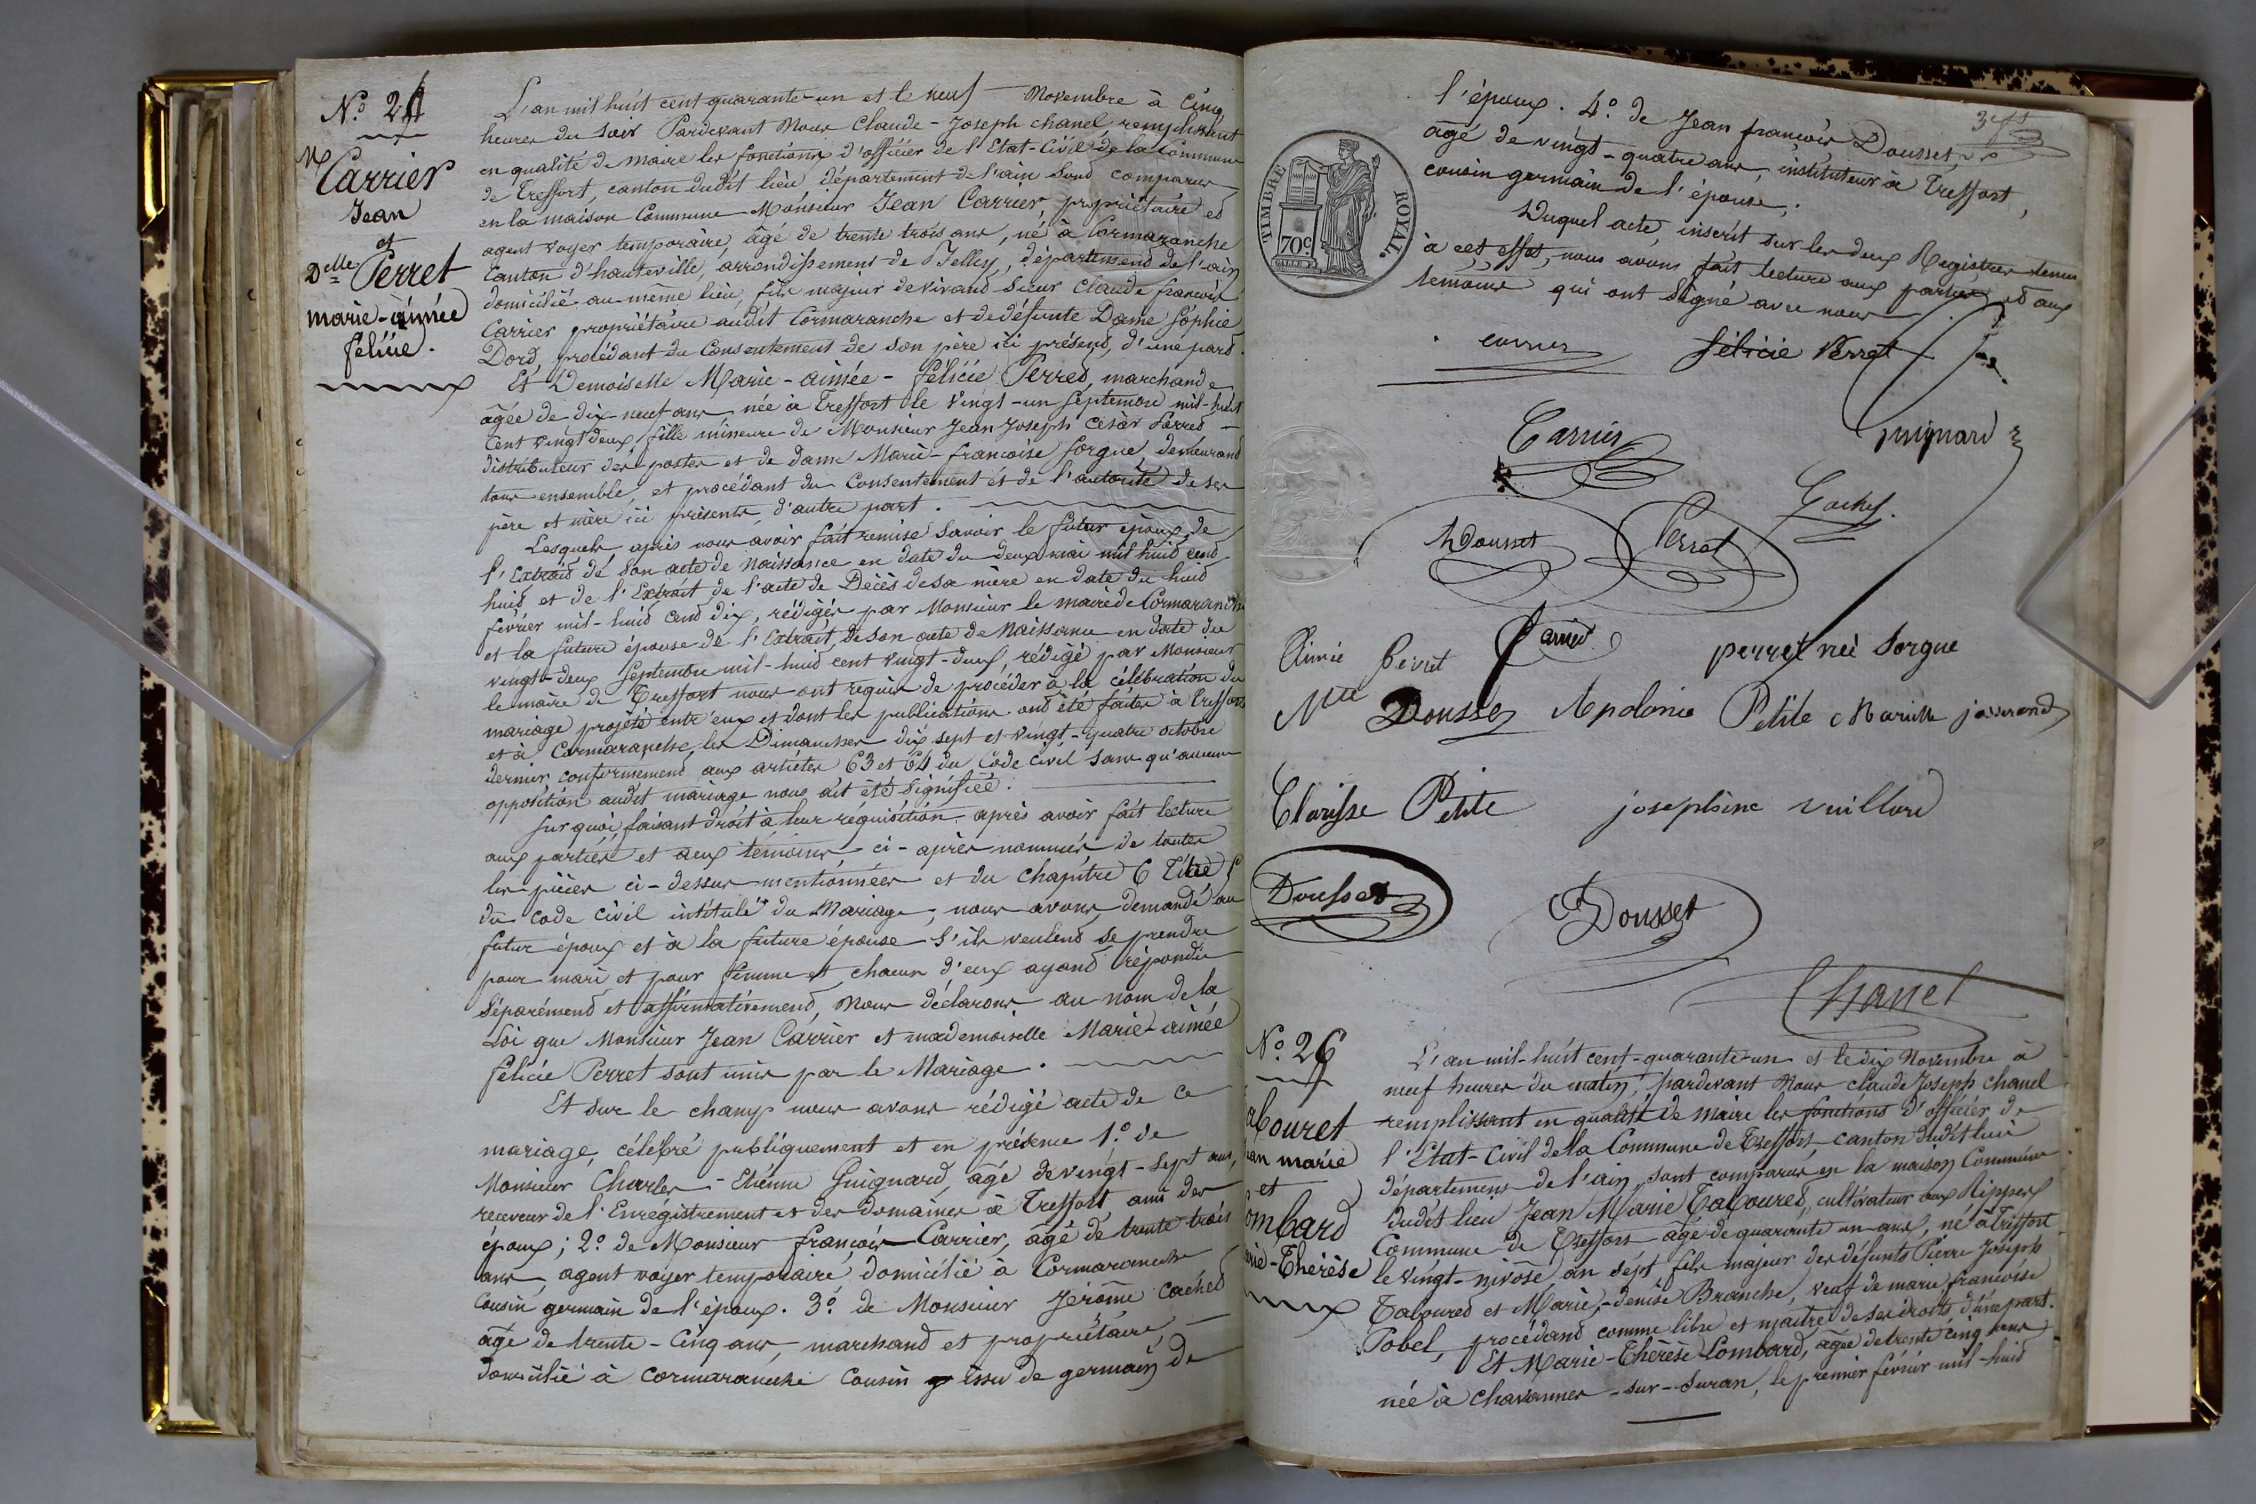 N.o 24
Mr
Carrier
Jean
et
Delle Perret
marie-aimée
félicie.
L'an mil huit cent quarante-un et le neuf Novembre à Cinq
heures du Soir Pardevant Nous Claude-Joseph chanel remplissant
en qualité de Maire les fonctions d'officier de l'Etat-Civil de la Commune
de Treffort, canton dudit lieu, département de l'ain Sont Comparus
en la maison Commune Monsieur Jean Carrier, propriétaire et
agent voyer temporaire, âgé de trente trois ans, né à Cormaranche
Canton d'hauteville, arrondissement de Belley, département de l'ain
domicilié au même lieu, fils majeur de vivant Sieur Claude françois
Carrier propriétaire audit Cormaranche et de défunte Dame Sophie
Dord, procédant du Consentement de son père ici présent, d'une part.
Et Demoiselle Marie-aimée-félicie Perret, marchande
âgée de dix neuf ans, née à Treffort le Vingt-un Septembre mil-huit
Cent Vingt deux, fille mineure de Monsieur Jean Joseph César Perret
distributeur des postes et de dame Marie-françoise Sorgue, demeurant
tous ensemble, et procédant du Consentement et de l'autorité de ses
père et mère ici présents, d'autre part.
Lesquels après nous avoir fait remise Savoir le futur époux, de
l'Extrait de son acte de Naissance en date du deux mai mil huit cent
huit et de l'Extrait de l'acte de Décès de sa mère en date du huit
février mil-huit cent dix, rédigés par Monsieur le maire de Cormaranche
et la future épouse de l'Extrait, de son acte de Naissance en date du
vingt-deux Septembre mil-huit cent vingt-deux, rédigé par Monsieur
le maire de Treffort nous ont requis de procéder à la célébration du
mariage projeté entr'eux et dont les publications ont été faites à Treffort
et à Cormaranche, les Dimanches dix sept et vingt-quatre octobre
dernier conformément aux articles 63 et 64 du Code Civil sans qu'aucune
opposition audit mariage nous ait été Signifiée.
Sur quoi, faisant droit à leur réquisition, après avoir fait lecture
aux parties et aux témoins ci-après nommés de toutes
les pièces ci-dessus mentionnées et du chapitre 6 Titre 5
du Code civil intitulé du Mariage, nous avons demandé au
futur époux et à la future épouse s'ils veulent se prendre
pour mari et pour femme et chacun d'eux ayant répondu
Séparément et affirmativement, Nous déclarons au nom de la
Loi que Monsieur Jean Carrier et mademoiselle Marie-aimée
félicie Perret sont unis par le Mariage.
Et sur le champ nous avons rédigé acte de ce
mariage, célébré publiquement et en présence 1.o de
Monsieur Charles-Etienne Guignard, âgé de vingt-sept ans,
receveur de l'Enregistrement et des domaines à Treffort, ami des
époux; 2.o de Monsieur françois Carrier, âgé de trente trois
ans, agent voyer temporaire, domicilié à Cormaranche
Cousin germain de l'époux. 3.o de Monsieur Jérôme Cachet
âgé de trente-cinq ans, marchand et propriétaire,
domicilié à Cormaranche Cousin issu de germain de
l'époux. 4.o de Jean françois Dousset,
âgé de vingt-quatre ans, instituteur à Treffort,
cousin germain de l'épouse;
Duquel acte, inscrit sur les deux Registres tenus
à cet effet, nous avons fait lecture aux parties et aux
témoins qui ont Signé avec nous
TIMBRE ROYAL.
70c
carrier félicie Perret
Carrier Guignard
Gachet.
Dousset Perret
Aimée Perret Carrier perret née Sorgue
Mlle Dousset Apolonie Petite Mariette josserand
Clarisse Petite josephine vuillard
Dousset Dousset
Chanel
N.o 26
abouret
ean marie
et
ombard
arie-Thérèse
L'an mil-huit cent-quarante-un et le dix Novembre à
neuf heures du matin, pardevant Nous Claude Joseph Chanel
remplissant en qualité de Maire les fonctions d'officier de
l'Etat-Civil de la Commune de Treffort, canton dudit lieu
département de l'ain, sont comparus en la maison Commune
dudit lieu Jean Marie Tabouret, cultivateur aux Rippes
Commune de Treffort âgé de quarante un ans, né à Treffort
le vingt-nivôse an sept fils majeur des défunts Pierre Joseph
Tabouret et Marie-denise Branche, veuf de marie françoise
Tobel, procédant comme libre et maître de ses droits d'une part.
Et Marie-Thérèse Lombard, âgée de trente cinq ans
née à Chavannes-sur-Suran, le premier février mil-huit